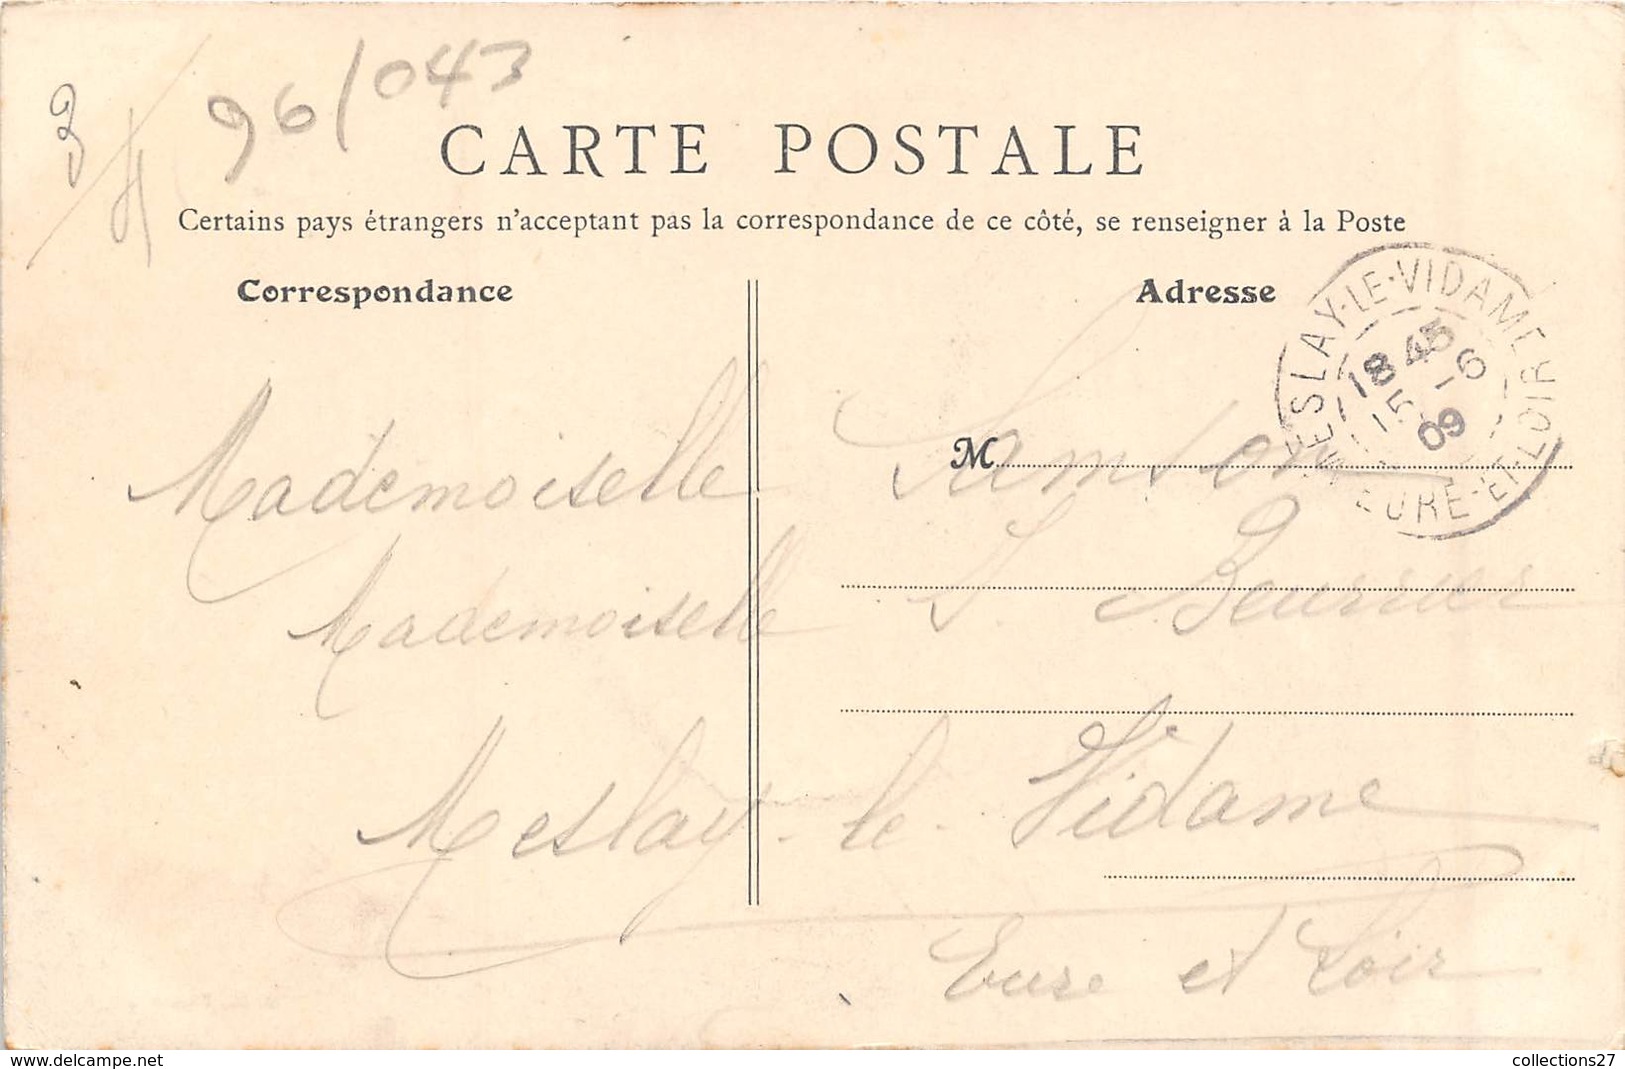 3
96/043
CARTE POSTALE
Certains pays étrangers n'acceptant pas la correspondance de ce côté, se renseigner à la Poste
Correspondance
Adresse
MESLAY-LE-VIDAME
18 45
15 -6
09
EURE-ET-LOIR
M
Mademoiselle Samson
Mademoiselle S. Beurrier
Meslay-le-Vidame
Eure et Loir
www.delcampe.net
collections27